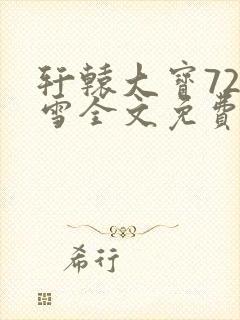 轩辕大宝72
雪全文免费
希行